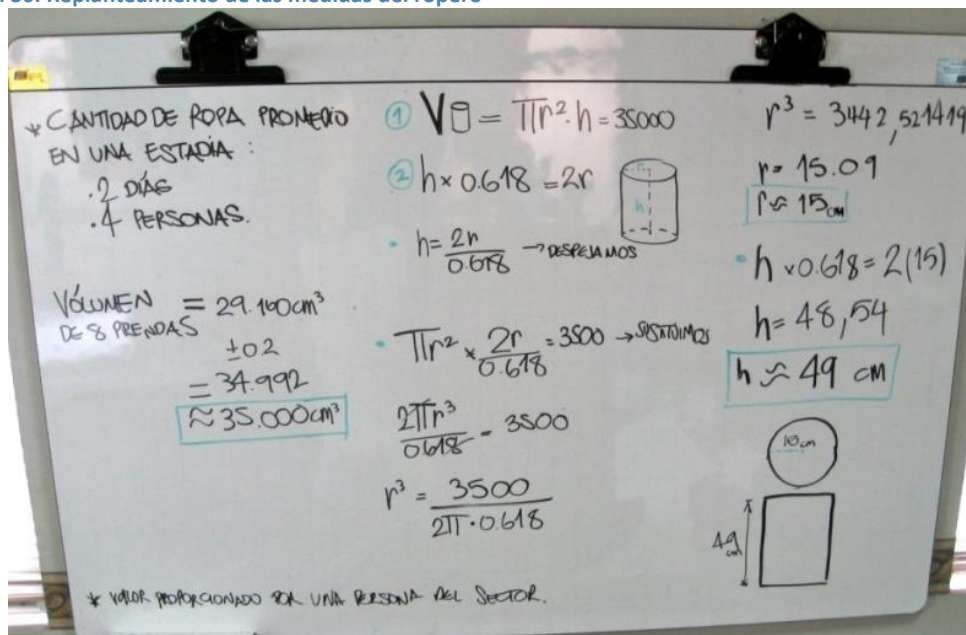 50: Replanteamiento de las medidas del ropero
* CANTIDAD DE ROPA PROMEDIO
EN UNA ESTADÍA :
· 2 DÍAS
· 4 PERSONAS.
VÓLUMEN = 29.160cm³
DE 8 PRENDAS
±02
= 34.992
≈ 35.000cm³
① V = πr².h = 35000
② h × 0.618 = 2r
r
h
• h = 2r/0.618 → DESPEJAMOS
• πr² × 2r/0.618 = 3500 → SUSTITUIMOS
2πr³/0.618 = 3500
r³ = 3500/2π·0.618
r³ = 3442,521419
r = 15.09
r ≈ 15cm
• h × 0.618 = 2(15)
h = 48,54
h ≈ 49 cm
15cm
49 cm
* VALOR PROPORCIONADO POR UNA PERSONA DEL SECTOR.